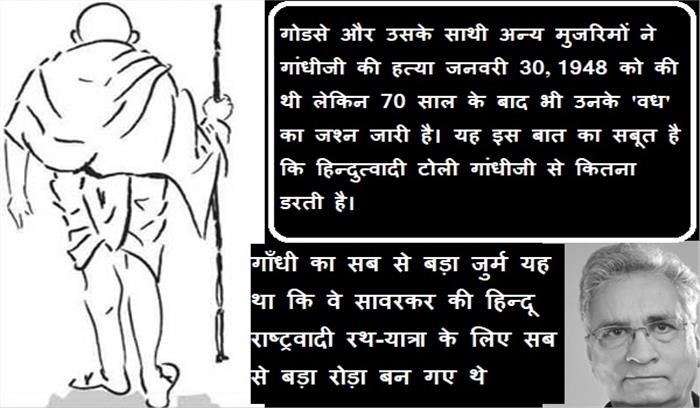 गोडसे और उसके साथी अन्य मुजरिमों ने
गांधीजी की हत्या जनवरी 30, 1948 को की
थी लेकिन 70 साल के बाद भी उनके 'वध'
का जश्न जारी है। यह इस बात का सबूत है
कि हिन्दुत्वादी टोली गांधीजी से कितना
डरती है।
गाँधी का सब से बड़ा जुर्म यह
था कि वे सावरकर की हिन्दू
राष्ट्रवादी रथ-यात्रा के लिए सब
से बड़ा रोड़ा बन गए थे